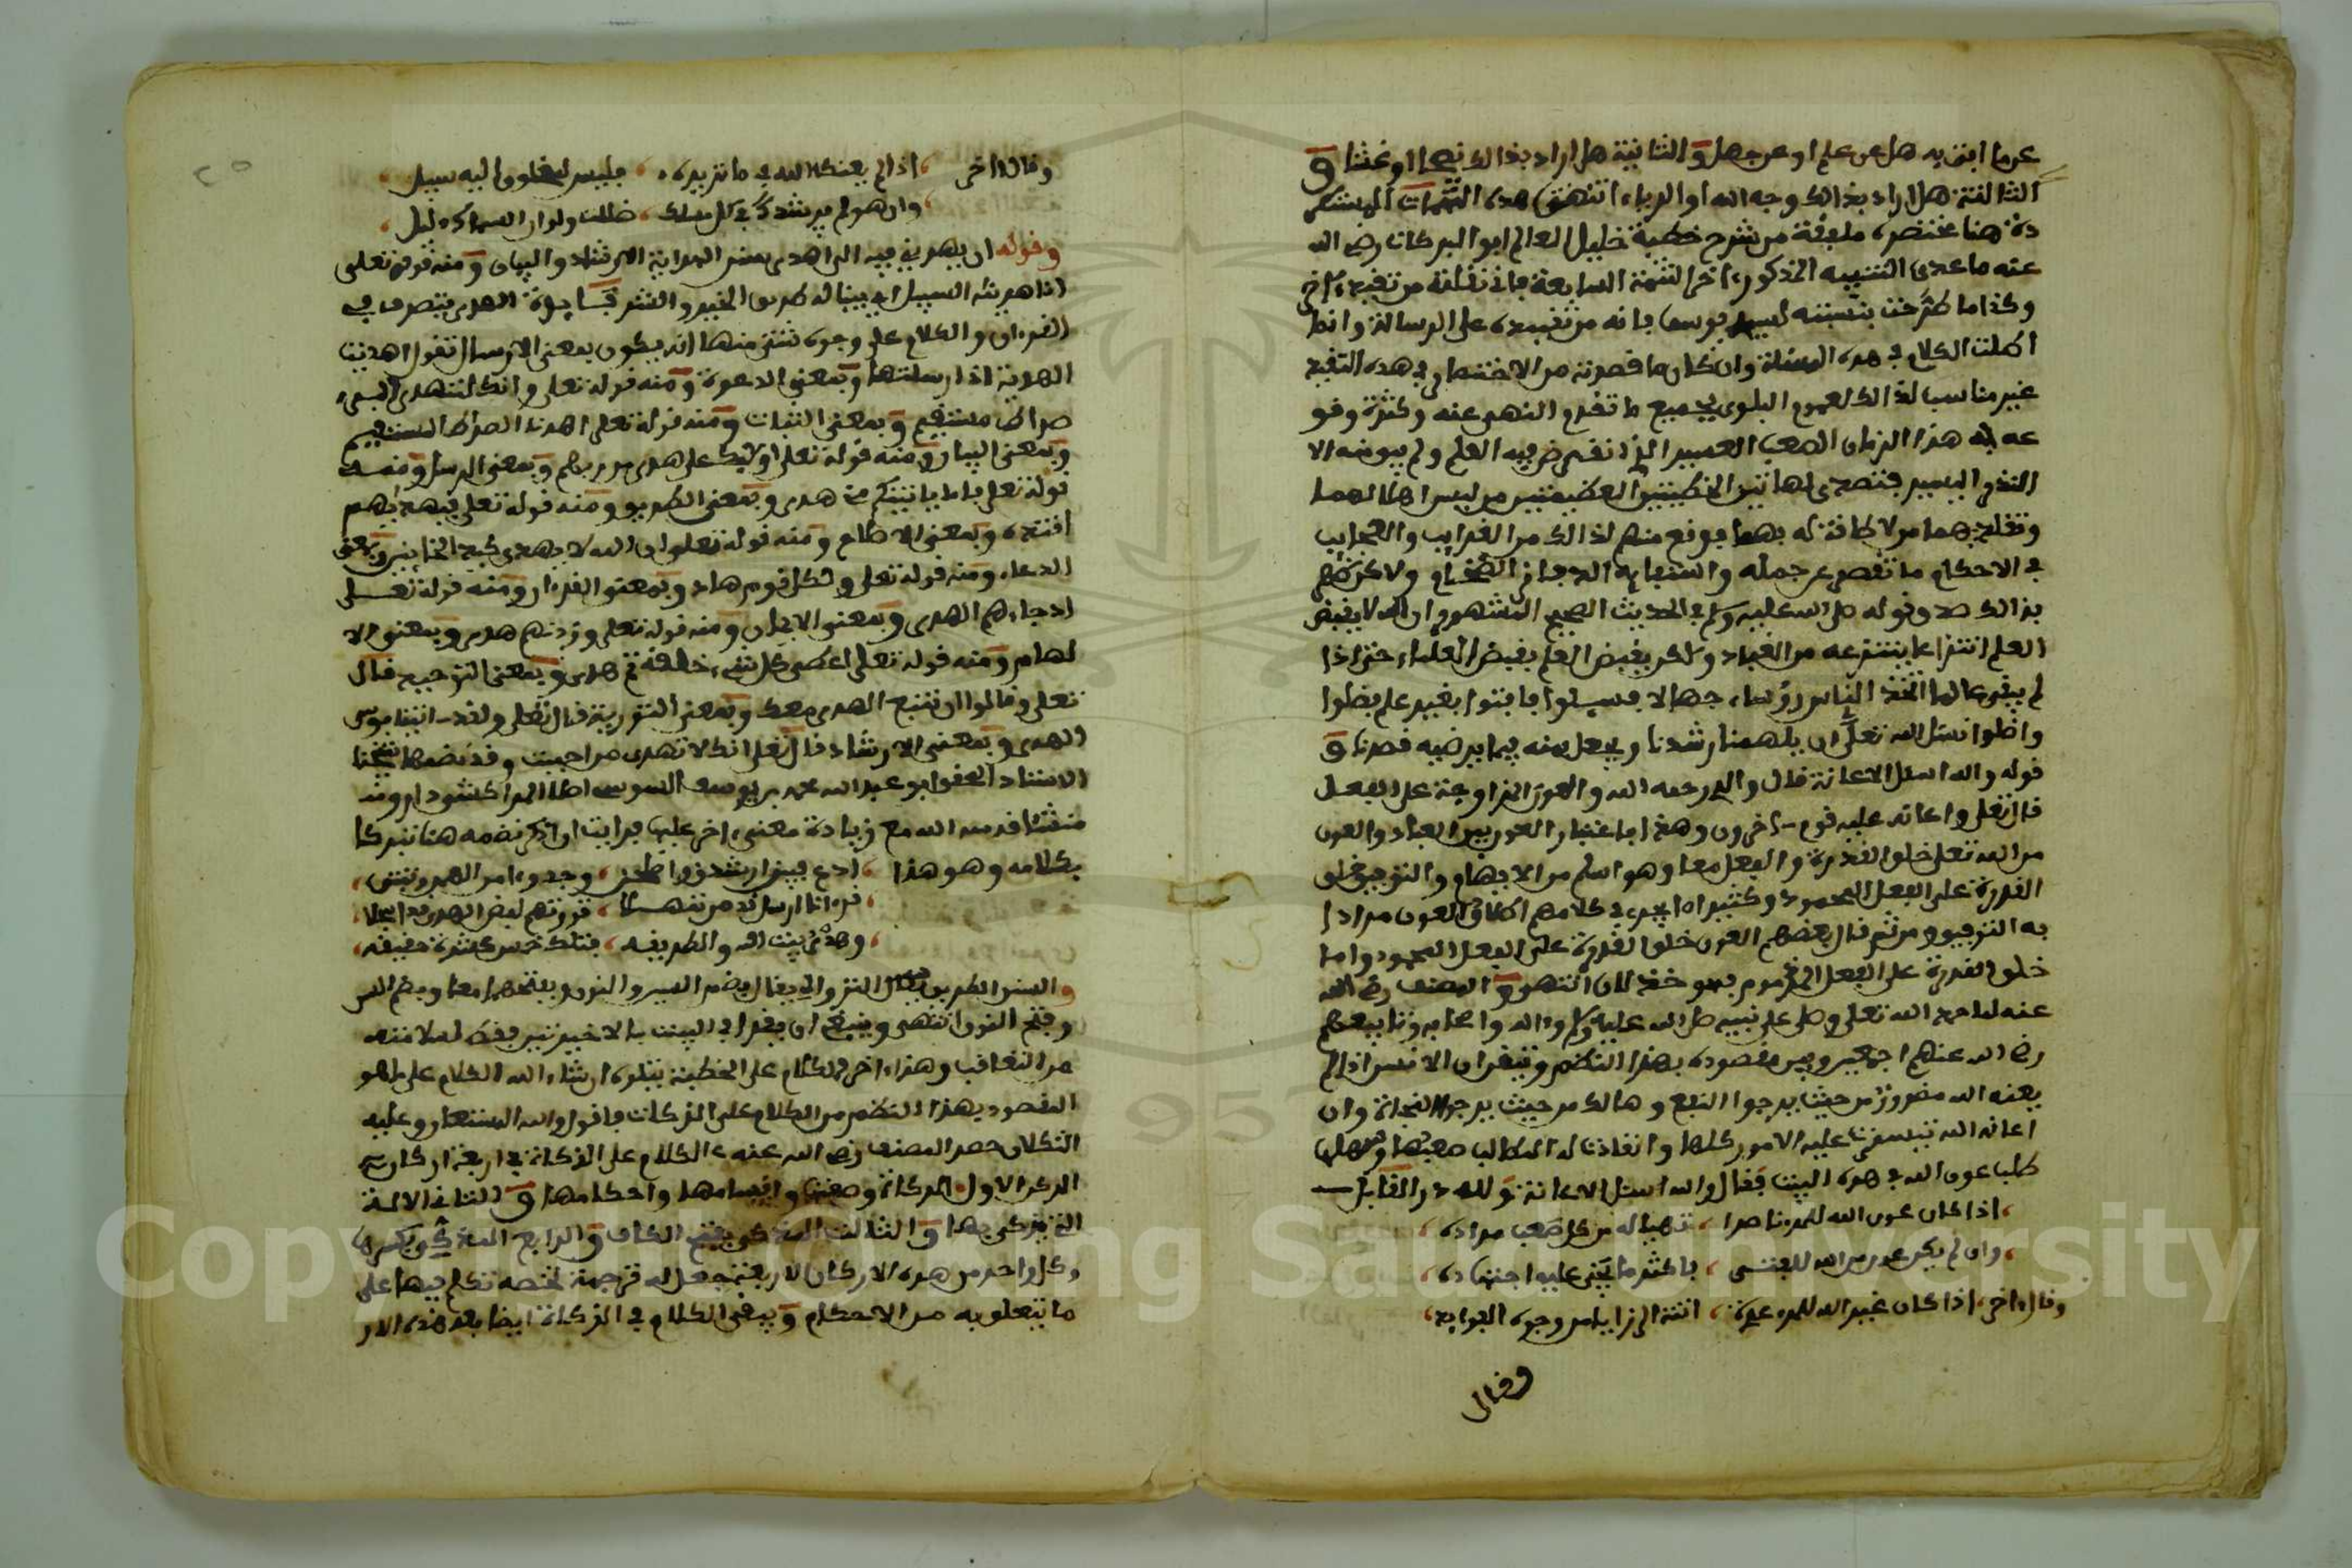 عن ما افتى به هل عن علم او عن جهل والثانية هل اراد بذالك نصحا او غشا و
الثالثة هل اراد بذالك وجه الله او الرياء انتهى هذه التتمات
هنا مختصرة ملفقة من شرح خطبة خليل العالم ابو البركات رضي الله
عنه ما عدى التنبيه المذكور اخر التتمة السابعة فاني نقلته من تقييد اخر
وكذا ما صرحت بنسبته لسيدي يوسف فانه من تقييده على الرسالة وانما
اطلت الكلام في هذه المسئلة وان كان ما قصدته من الاختصار في هذه التقييد
غير مناسب لذالك لعموم البلوى بجميع ما تقدم النهي عنه وكثرة وقو
عه في هذا الزمان الصعب العسير الذي انقرض فيه العلم ولم يبق منه الا
النذر اليسير فتصدى لهاتين الخطتين العظيمتين من ليس اهلا لهما
وتقلد بهما من لا طاقة له بهما فوقع منهم لذالك من الغرايب والعجايب
في الاحكام ما تقصر عن جمله
بذالك صدق قوله صلى الله عليه وسلم في الحديث الصحيح المشهور ان الله لا يقبض
العلم انتزاعا ينتزعه من العباد ولكن يقبض العلم بقبض العلماء حتى اذا
لم يبق عالما اتخذ الناس رؤساء جهالا فسيلوا فافتوا بغير علم فضلوا
واضلوا نسئل الله تعلى ان يلهمنا رشدنا ويجعل منه فيما يرضيه قصدنا و
قوله والله اسئل الاعانة قال والدي رحمه الله والعون المزاوجة على الفعل
قال تعلى واعانه عليه قوم اخرون وهذا باعتبار العون بين العباد والعون
من الله تعلى خلق القدرة والفعل معا وهو اسلم من الابهام والتوفيق خلق
القدرة على الفعل المحمود وكثيرا ما يجرى في كلامهم اطلاق العون مرادا
به التوفيق ومن ثم قال بعضهم العون خلق القدرة على الفعل المحمود واما
خلق القدرة على الفعل المذموم فهو خذلان انتهى والمصنف رضي الله
عنه لما حمد الله تعلى وصلى على نبيه صلى الله عليه وسلم واله واصحابه وتابعيهم
رضي الله عنهم اجمعين وبين مقصوده بهذا النظم وتيقن ان الانس اذا لم
يعنه الله مضرور من حيث يرجوا النفع وهالك من حيث يرجوا النجاة وان
اعانه الله تيسرت عليه الامور كلها وانقادت له المطالب صعبها وسهلها
طلب عون الله في هذه البيت فقال والله اسئل الاعانة ولله در القايل
اذا كان عون الله للمرء ناصرا ، تهيا له من كل صعب مراده
وان لم يكن عون من الله للفتى ، فاكثر ما يجني عليه اجتهاده
وقال اخر ، اذا كان غير الله للمرء عدة ، اتته الرزايا من وجوه الفوايد
وقال
وقال اخر ، اذا لم يعنك الله في ما تريده ، فليس لمخلوق اليه سبيل
وان هو لم يرشدك في كل مسلك ، ضللت ولو ان السماك دليل
وقوله ان يهديني فيه الى اهدى سنن الهداية الارشاد والبيان ومنه قوله تعلى
انا هديناه السبيل اي بينا له طريق الخير والشر الهدى يتصرف في
القرءان والكلام على وجوه شتى منها انه يكون بمعنى الارسال تقول اهديت
الهدية اذا ارسلتها وبمعنى الدعوة ومنه قوله تعلى وانك لتهدي الى
صراط مستقيم وبمعنى الثبات ومنه قوله تعلى اهدنا الصراط المستقيم
وبمعنى البيان ومنه قوله تعلى اوليك على هدى من ربهم وبمعنى الرسل ومنه
قوله تعلى فاما ياتينكم مني هدى وبمعنى الطريق ومنه قوله تعلى فبهديهم
اقتده وبمعنى الاصلاح ومنه قوله تعلى وان الله لا يهدي كيد الخاينين وبمعنى
الدعاء ومنه قوله تعلى ولكل قوم هاد وبمعنى القرءان ومنه قوله تعلى
اذ جاءهم الهدى وبمعنى الايمان ومنه قوله تعلى وزدنهم هدى وبمعنى الا
لهام ومنه قوله تعلى اعطى كل شيء خلقه ثم هدى وبمعنى التوحيد قال
تعلى وقالوا ان نتبع الهدى معك وبمعنى التورية قال تعلى ولقد اتينا موسى
الهدى وبمعنى الارشاد قال تعلى انك لا تهدي من احببت وقد نضمها شيخنا
الاستاد المحقق ابو عبد الله محمد بن يوسف السوسي اصلا المراكشي دارا و
منشئا قدسه الله مع زيادة معنى اخر عليها فرايت ان اذكر نضمه هنا تبركا
بكلامه وهو هذا ،
قرءانا ارسال
بيت الله والطريقه ، فتلك خمس عشرة حقيقه
والسنن الطريق يقال بضم السين والنون وبفتحهما معا وبضم السين
وفتح النون انتهى وينبغي ان يقرا في البيت بالاخيرتين فقط لسلامته
من التعاقب وهذا اخر الكلام على الخطبة يتلوه ان شاء الله الكلام على ما هو
المقصود بهذا النظم من الكلام على الزكات فاقول والله المستعان وعليه
التكلان حصر المصنف رضي الله عنه الكلام على الزكاة في اربعة اركان
الركن الاول الزكاة وصفتها واقسامها واحكامها والثاني الالة
التي يزكى بها والثالث المذكى بفتح الكاف والرابع المذكي بكسرها
وكل واحد من هذه الاركان الاربعة جعل له ترجمة تخصه تكلم فيها على
ما يتعلق به من الاحكام وبقي الكلام في الزكاة ايضا بعد هذه الار
Copyright © King Saud University
957